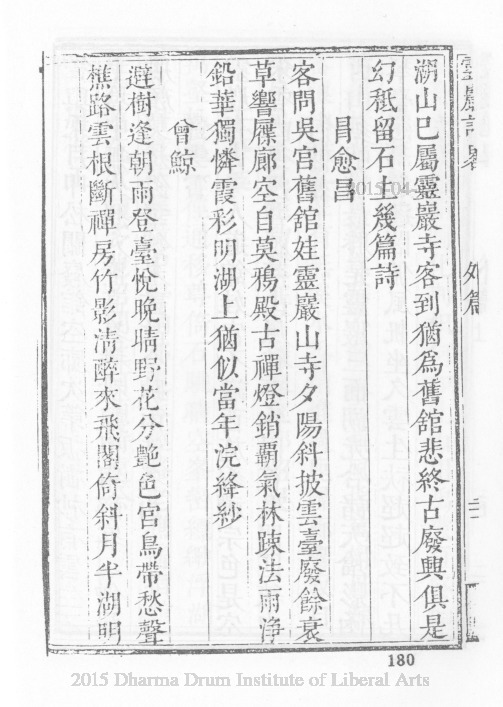 靈巖記畧 外篇
湖山已屬靈巖寺客到猶爲舊舘悲終古廢興俱是
幻秪留石上幾篇詩
冒愈昌
客問吳宮舊舘娃靈巖山寺夕陽斜披雲臺廢餘衰
草響屧廊空自莫鴉殿古禪燈銷霸氣林踈法雨淨
鉛華獨憐霞彩明湖上猶似當年浣絳紗
曾鯨
避樹逢朝雨登臺悅晚晴野花分艷色宮鳥帶愁聲
樵路雲根斷禪房竹影清醉來飛閣倚斜月半湖明
180
2015 Dharma Drum Institute of Liberal Arts